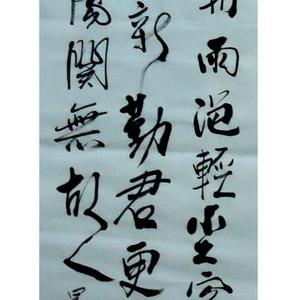 朝雨浥輕尘客
新勸君更
陽關無故人